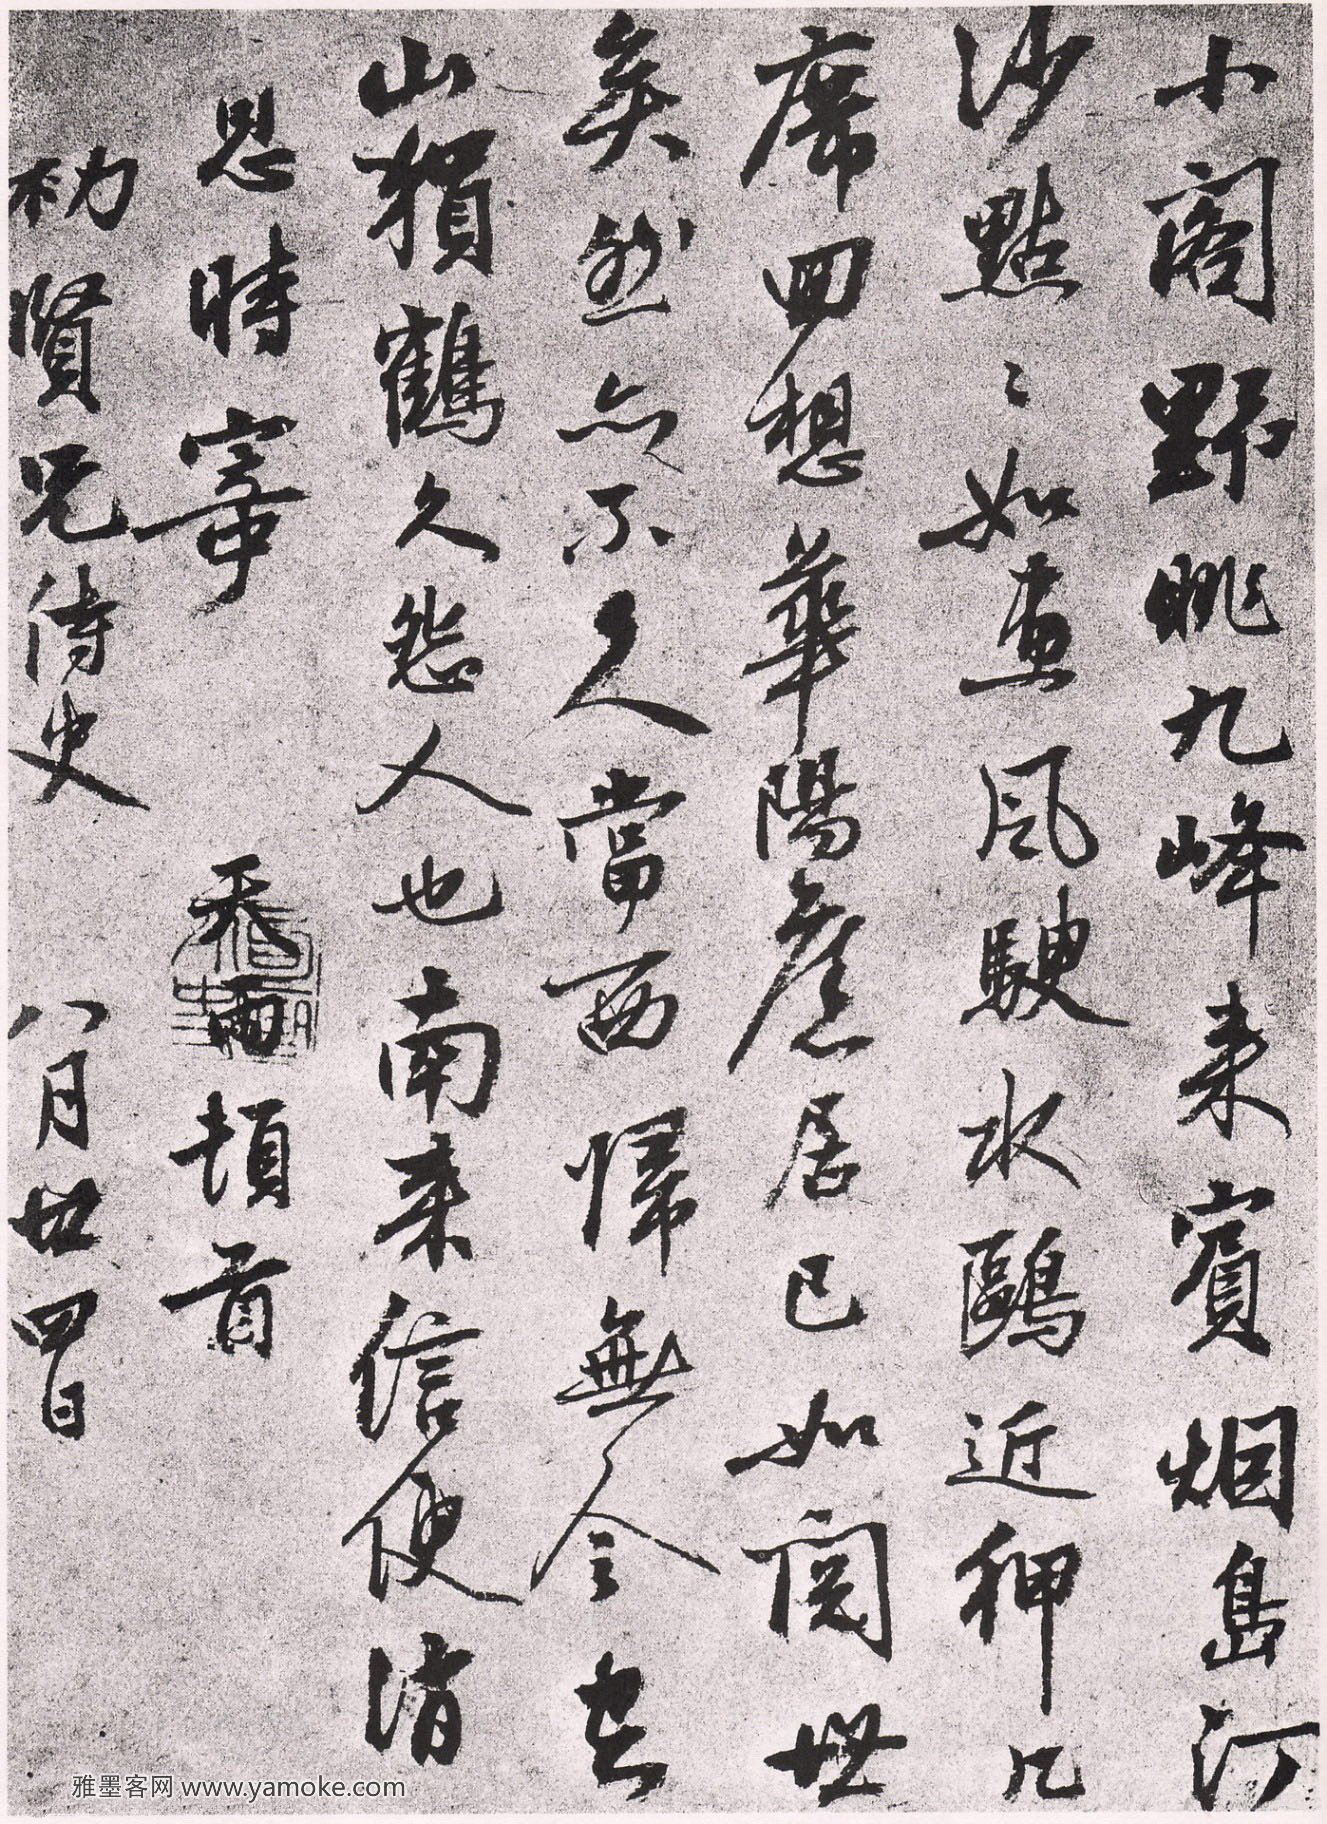 小閣野眺九峰来賓烟島汀
沙點〻如畫風駛水鷗近狎几
席回想華陽居已如閱世
矣然亦不久當西歸無令
山猿鶴久怨人也南来信便消
息時寄 天雨頓首
初賢兄侍史 八月廿四日
雅墨客网 www.yamoke.com